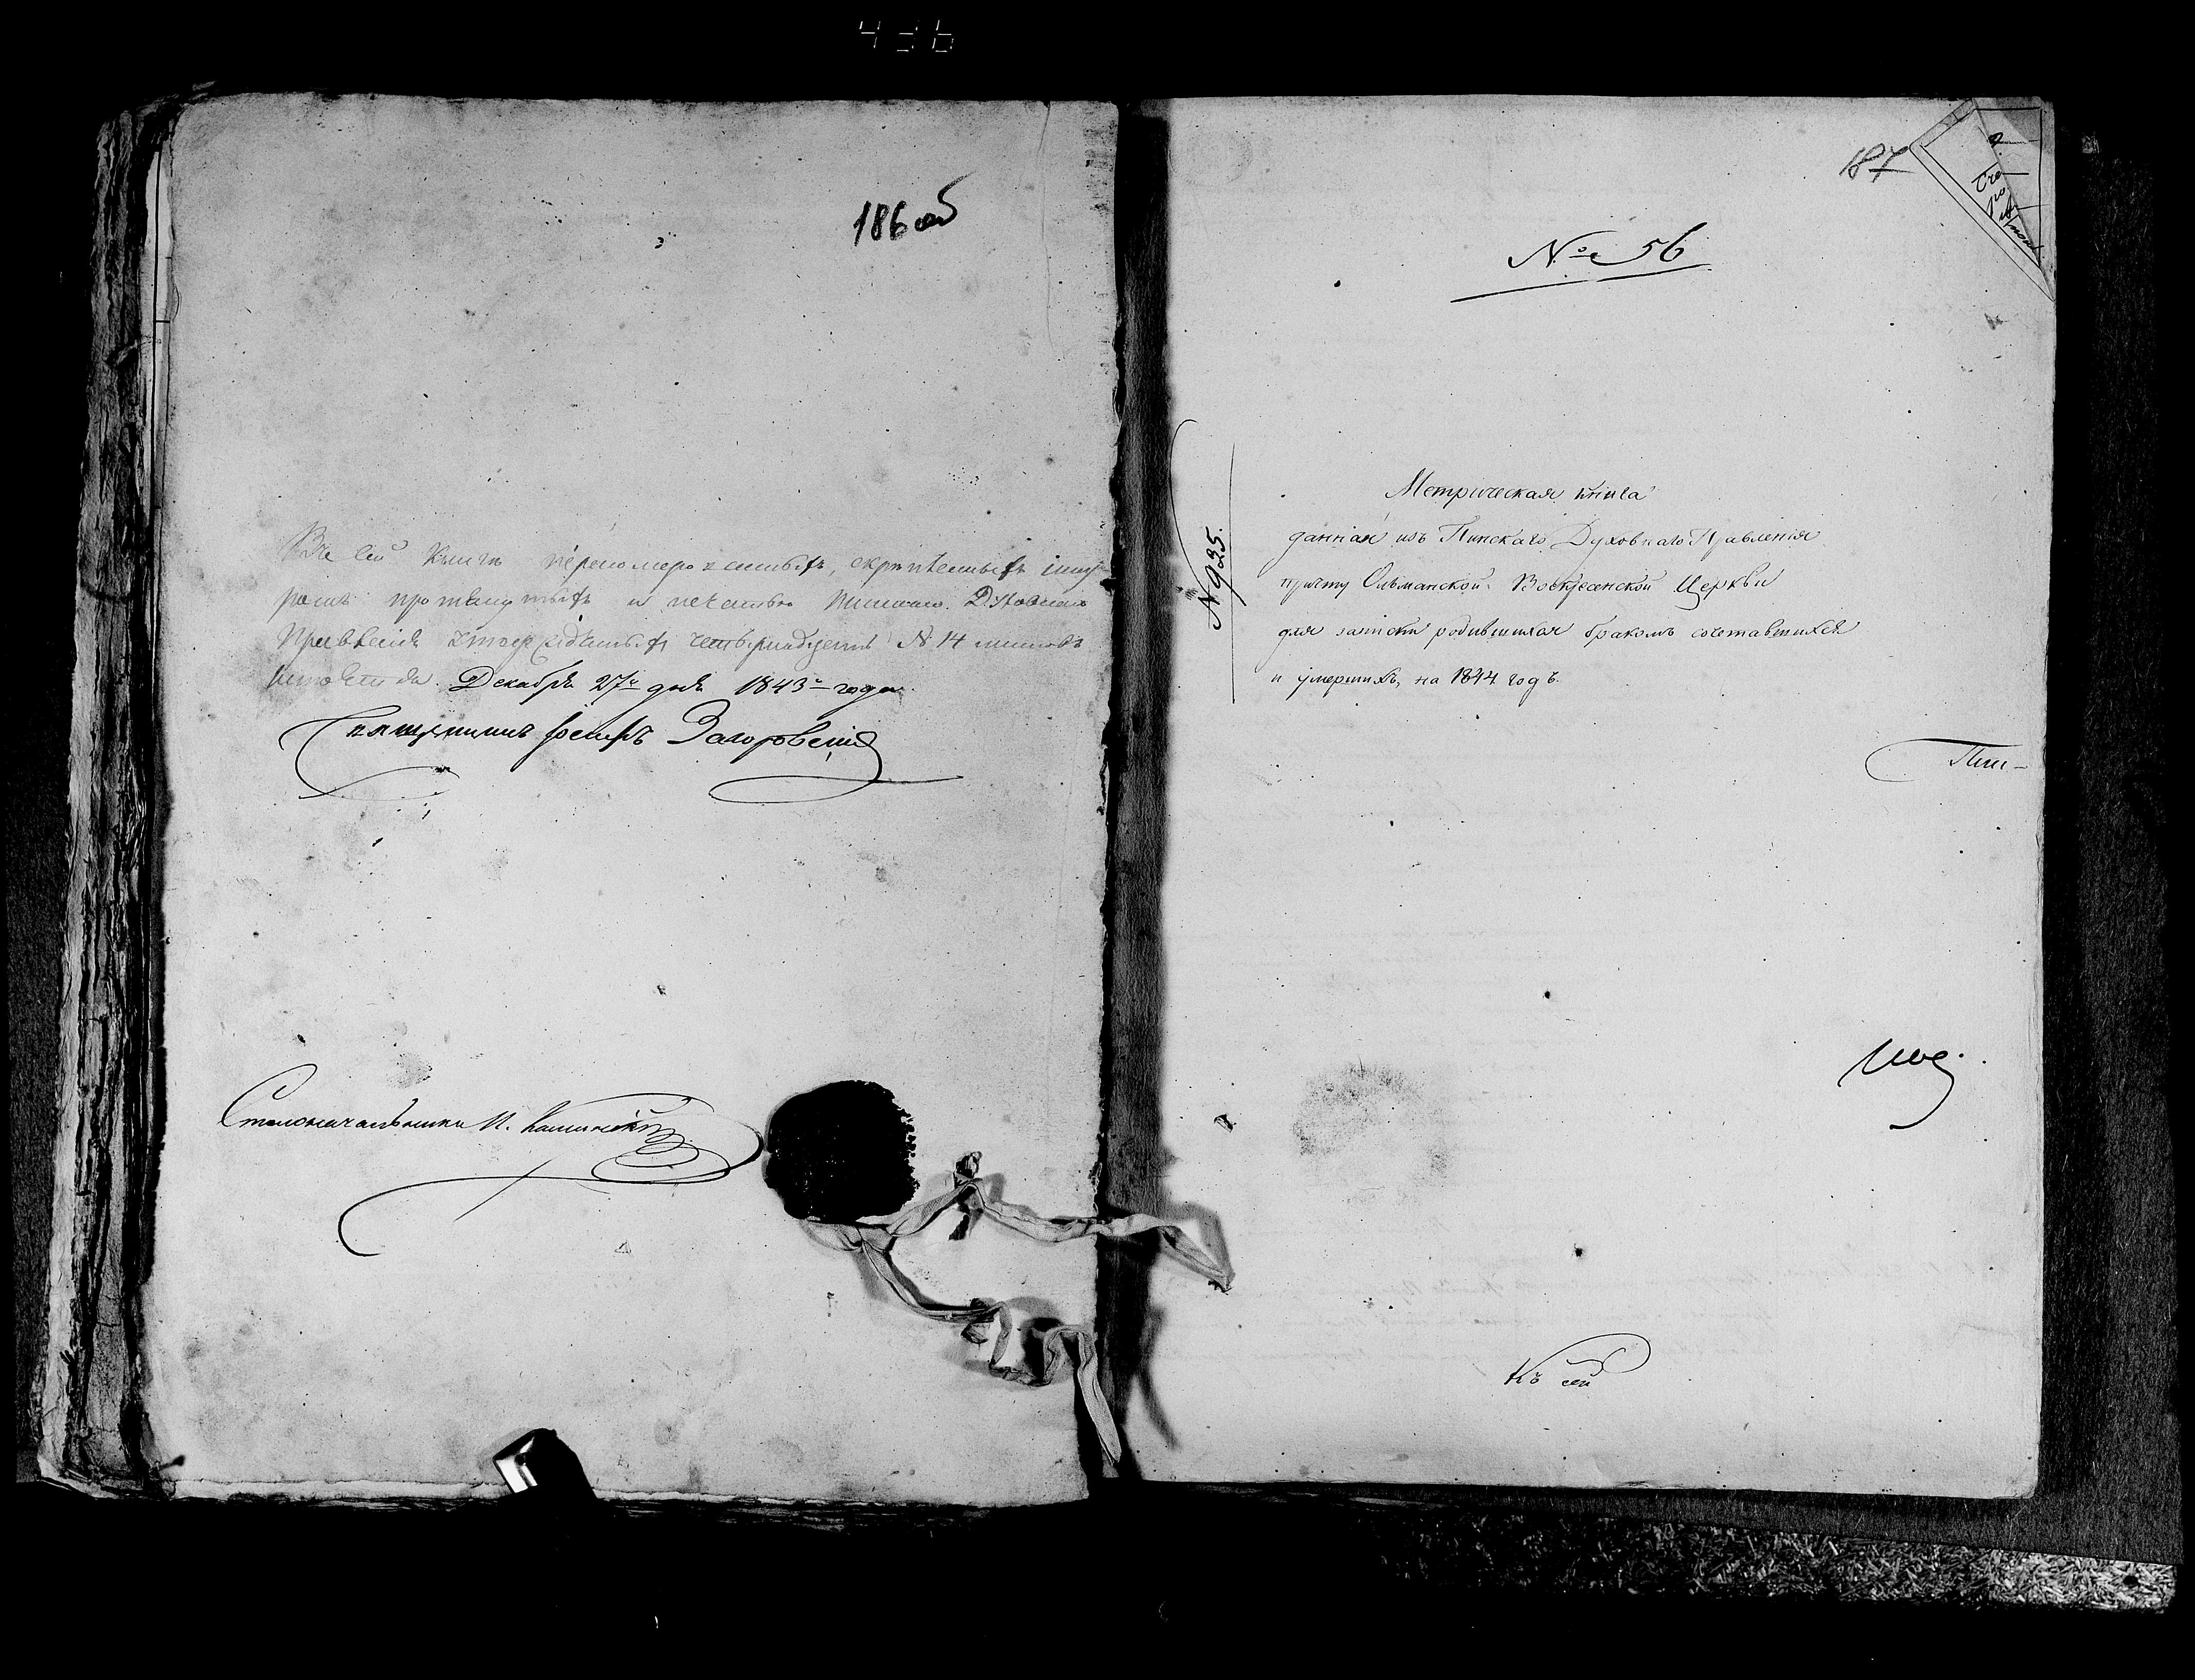 436
186 об
Въ сей книгѣ перенумерованныхъ, скрѣпленныхъ, шну-
ромъ протянутыхъ и печатью Пинскаго Духовнаго
Правленія утвержденныхъ четырнадцать № 14 листовъ
Декабря 27го дня 1843го года.
Священникъ Іосифъ Загоровскій
Столоначальникъ И. Калинскій
187
№ 56
№ 935.
Метрическая книга
данная изъ Пинскаго Духовнаго Правленія
причту Ольманской Воскресенской Церкви
для записки родившихся бракомъ сочетавшихся
и умершихъ, на 1844 годъ.
Пин-
Къ сей